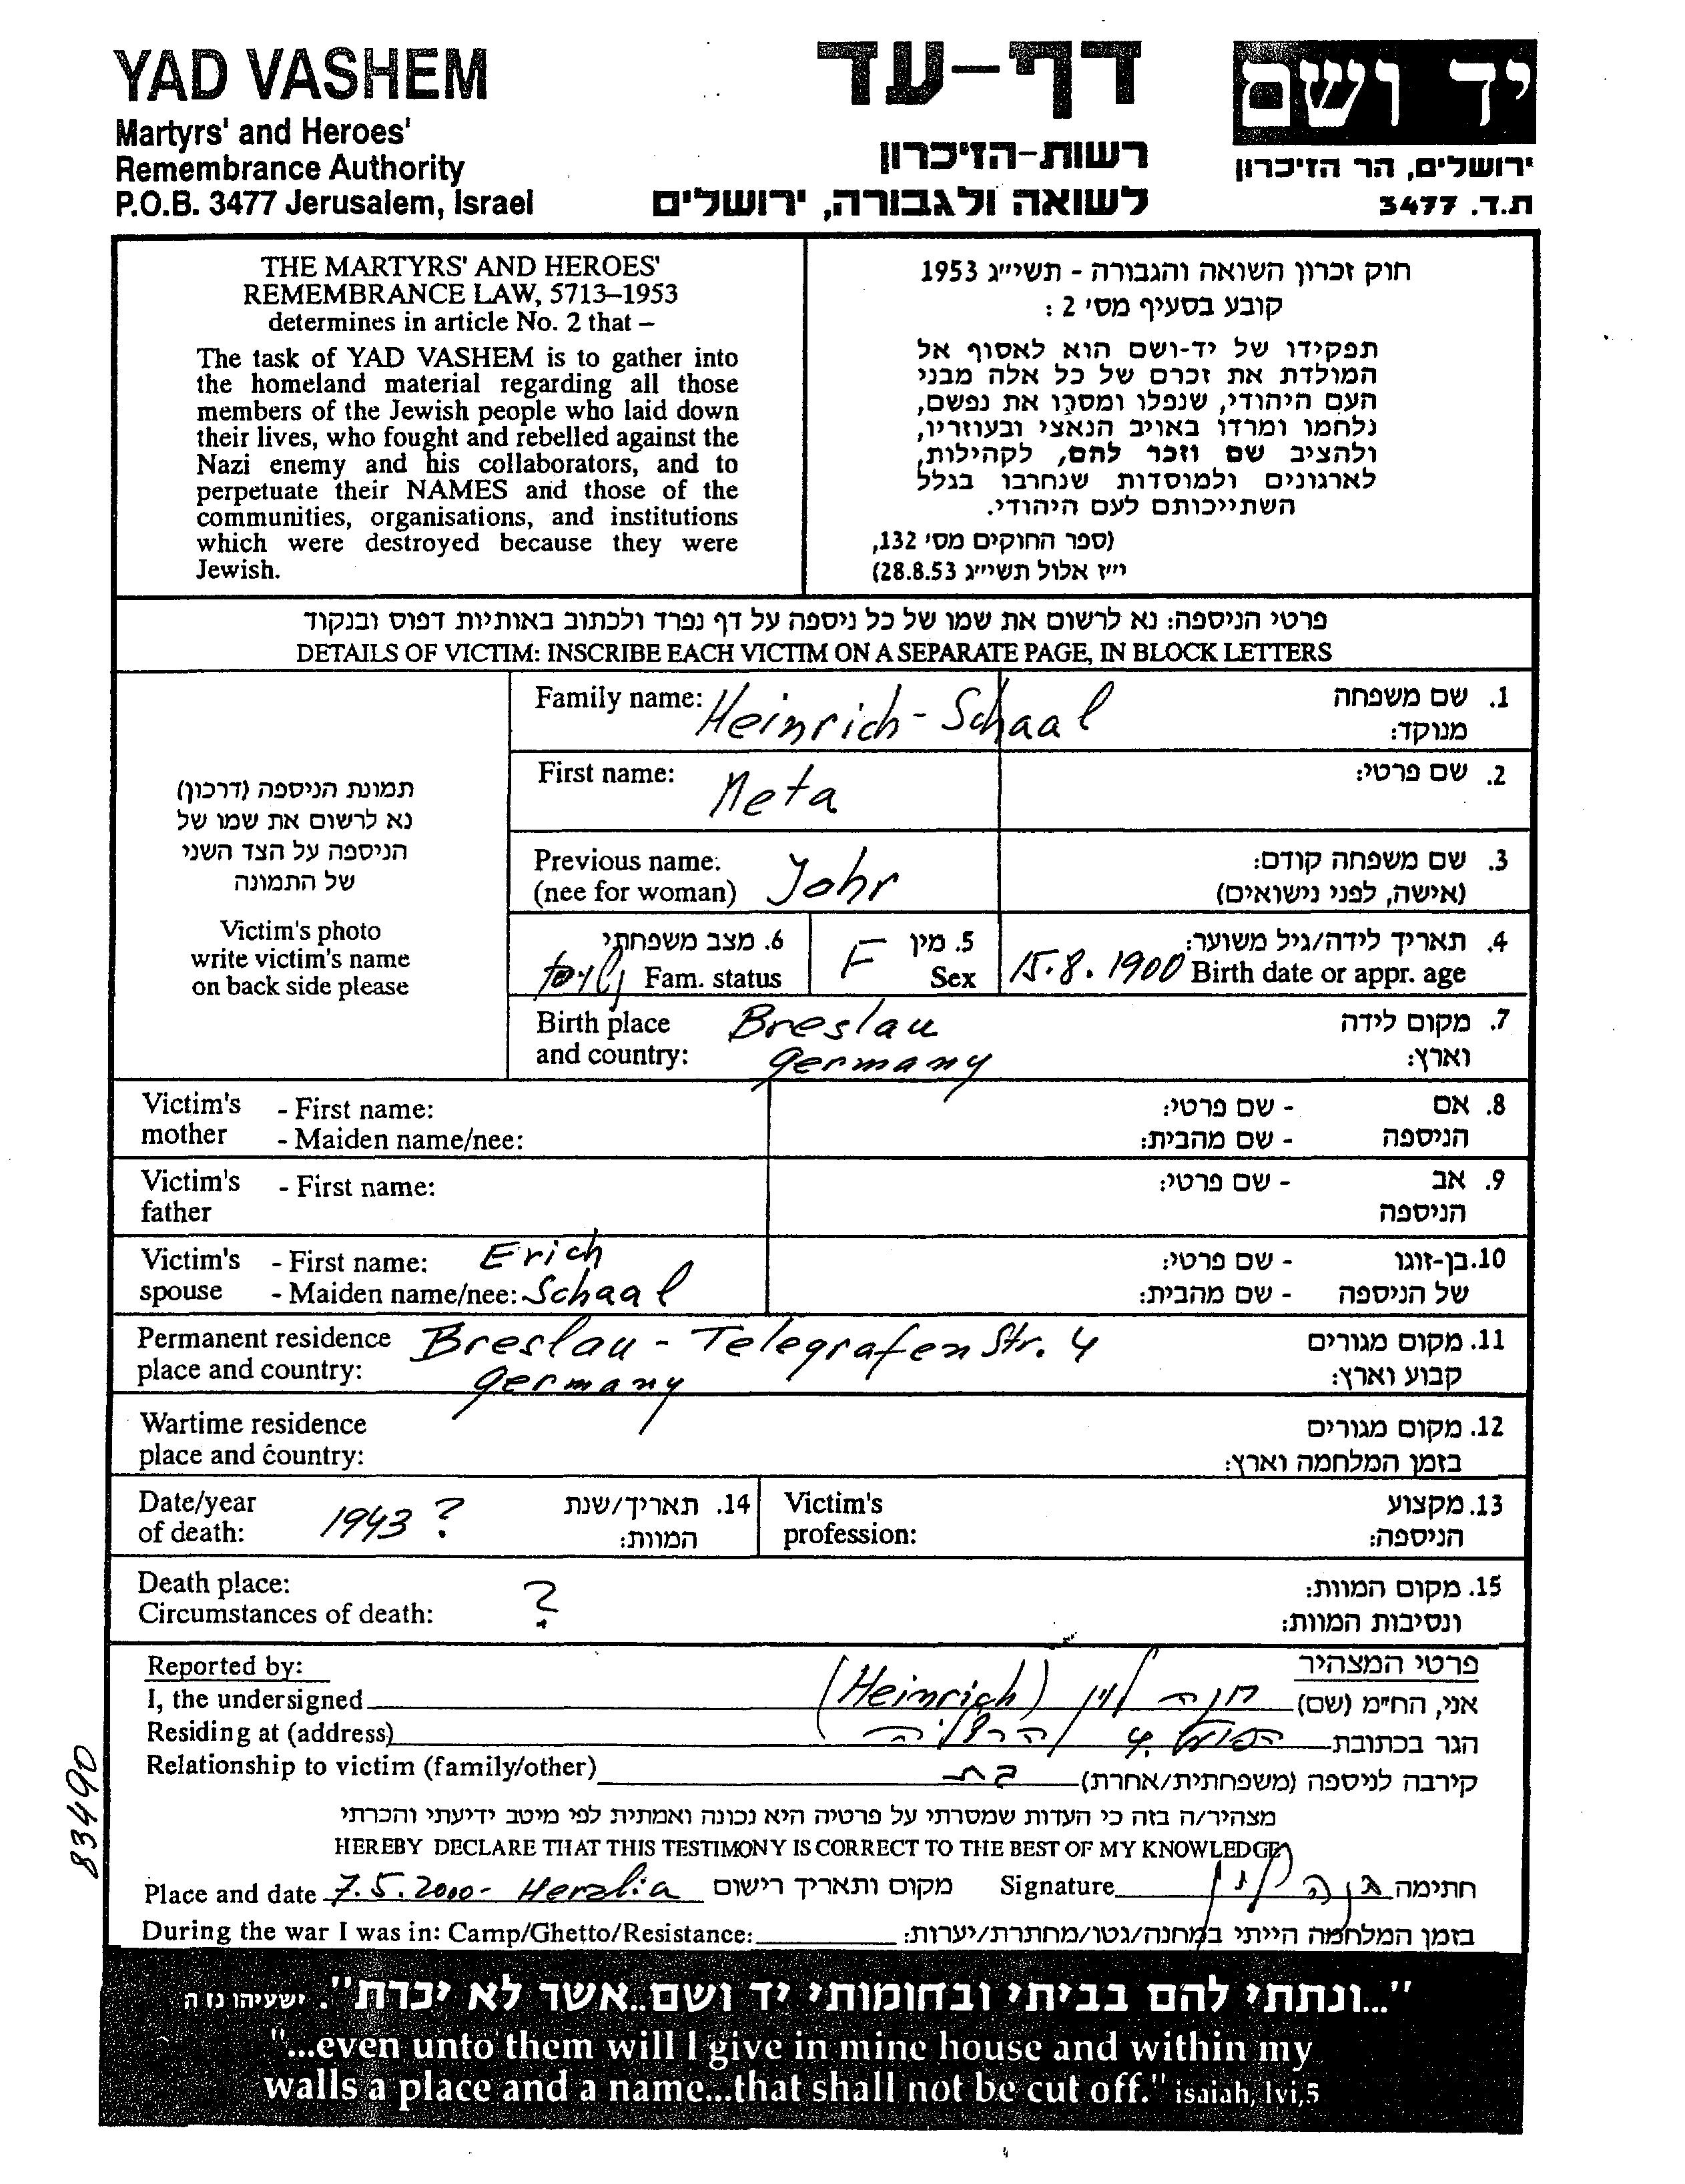 YAD VASHEM
Martyrs' and Heroes'
Remembrance Authority
P.O.B. 3477 Jerusalem, Israel
דף-עד
רשות-הזיכרון
לשואה ולגבורה, ירושלים
יד ושם
ירושלים, הר הזיכרון
ת.ד. 3477
THE MARTYRS' AND HEROES'
REMEMBRANCE LAW, 5713–1953
determines in article No. 2 that –
The task of YAD VASHEM is to gather into
the homeland material regarding all those
members of the Jewish people who laid down
their lives, who fought and rebelled against the
Nazi enemy and his collaborators, and to
perpetuate their NAMES and those of the
communities, organisations, and institutions
which were destroyed because they were
Jewish.
חוק זכרון השואה והגבורה - תשי״ג 1953
קובע בסעיף מס׳ 2 :
תפקידו של יד-ושם הוא לאסוף אל
המולדת את זכרם של כל אלה מבני
העם היהודי, שנפלו ומסרו את נפשם,
נלחמו ומרדו באויב הנאצי ובעוזריו,
ולהציב שם וזכר להם, לקהילות,
לארגונים ולמוסדות שנחרבו בגלל
השתייכותם לעם היהודי.
(ספר החוקים מס׳ 132,
י״ז אלול תשי״ג 28.8.53)
פרטי הניספה: נא לרשום את שמו של כל ניספה על דף נפרד ולכתוב באותיות דפוס ובנקוד
DETAILS OF VICTIM: INSCRIBE EACH VICTIM ON A SEPARATE PAGE, IN BLOCK LETTERS
תמונת הניספה (דרכון)
נא לרשום את שמו של
הניספה על הצד השני
של התמונה
Victim's photo
write victim's name
on back side please
Family name: Heinrich-Schaal 1. שם משפחה
מנוקד:
First name: Meta 2. שם פרטי:
Previous name: Johr 3. שם משפחה קודם:
(nee for woman) (אישה, לפני נישואים)
6. מצב משפחתי 5. מין F 4. תאריך לידה/גיל משוער:
Fam. status Sex 15.8.1900 Birth date or appr. age
Birth place Breslau 7. מקום לידה
and country: Germany וארץ:
Victim's - First name: - שם פרטי: 8. אם
mother - Maiden name/nee: - שם מהבית: הניספה
Victim's - First name: - שם פרטי: 9. אב
father הניספה
Victim's - First name: Erich - שם פרטי: 10. בן-זוגו
spouse - Maiden name/nee: Schaal - שם מהבית: של הניספה
Permanent residence Breslau - Telegrafen Str. 4 11. מקום מגורים
place and country: Germany קבוע וארץ:
Wartime residence 12. מקום מגורים
place and country: בזמן המלחמה וארץ:
Date/year 1943 ? 14. תאריך/שנת Victim's 13. מקצוע
of death: המוות: profession: הניספה:
Death place: ? 15. מקום המוות:
Circumstances of death: ונסיבות המוות:
Reported by: פרטי המצהיר
I, the undersigned (Heinrich) חנה לוין אני, הח״מ (שם)
Residing at (address) 4 הרצליה הגר בכתובת
Relationship to victim (family/other) בת קירבה לניספה (משפחתית/אחרת)-
מצהיר/ה בזה כי העדות שמסרתי על פרטיה היא נכונה ואמתית לפי מיטב ידיעתי והכרתי
HEREBY DECLARE THAT THIS TESTIMONY IS CORRECT TO THE BEST OF MY KNOWLEDGE
Place and date 7.5.2000- Herzlia מקום ותאריך רישום Signature חנה לוין חתימה
During the war I was in: Camp/Ghetto/Resistance: בזמן המלחמה הייתי במחנה/גטו/מחתרת/יערות:
83490
"...ונתתי להם בביתי ובחומותי יד ושם..אשר לא יכרת". ישעיהו נו ה
"...even unto them will I give in mine house and within my
walls a place and a name...that shall not be cut off." isaiah, lvi,5